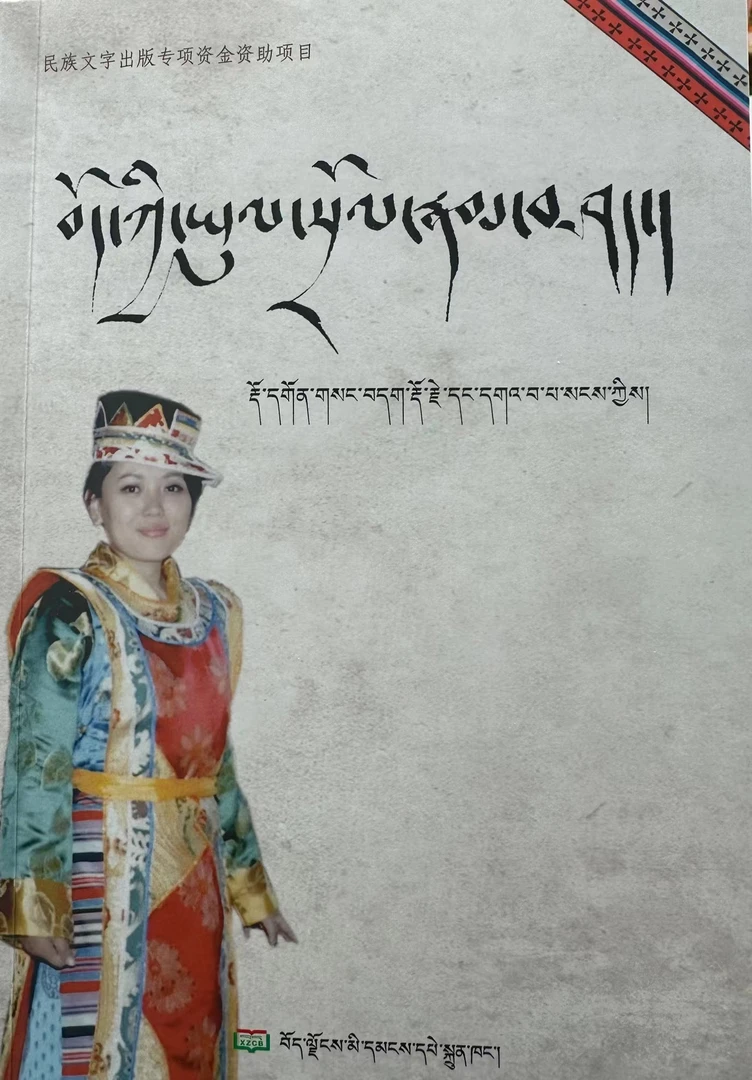 民族文字出版专项资金资助项目
བོད་ཀྱི་ཡུལ་སྲོལ་རྣམ་བཤད།།
རྡོ་དགོན་གསང་བདག་རྡོ་རྗེ་དང་དགའ་བ་པ་སངས་ཀྱིས།
XZCB
བོད་ལྗོངས་མི་དམངས་དཔེ་སྐྲུན་ཁང་།